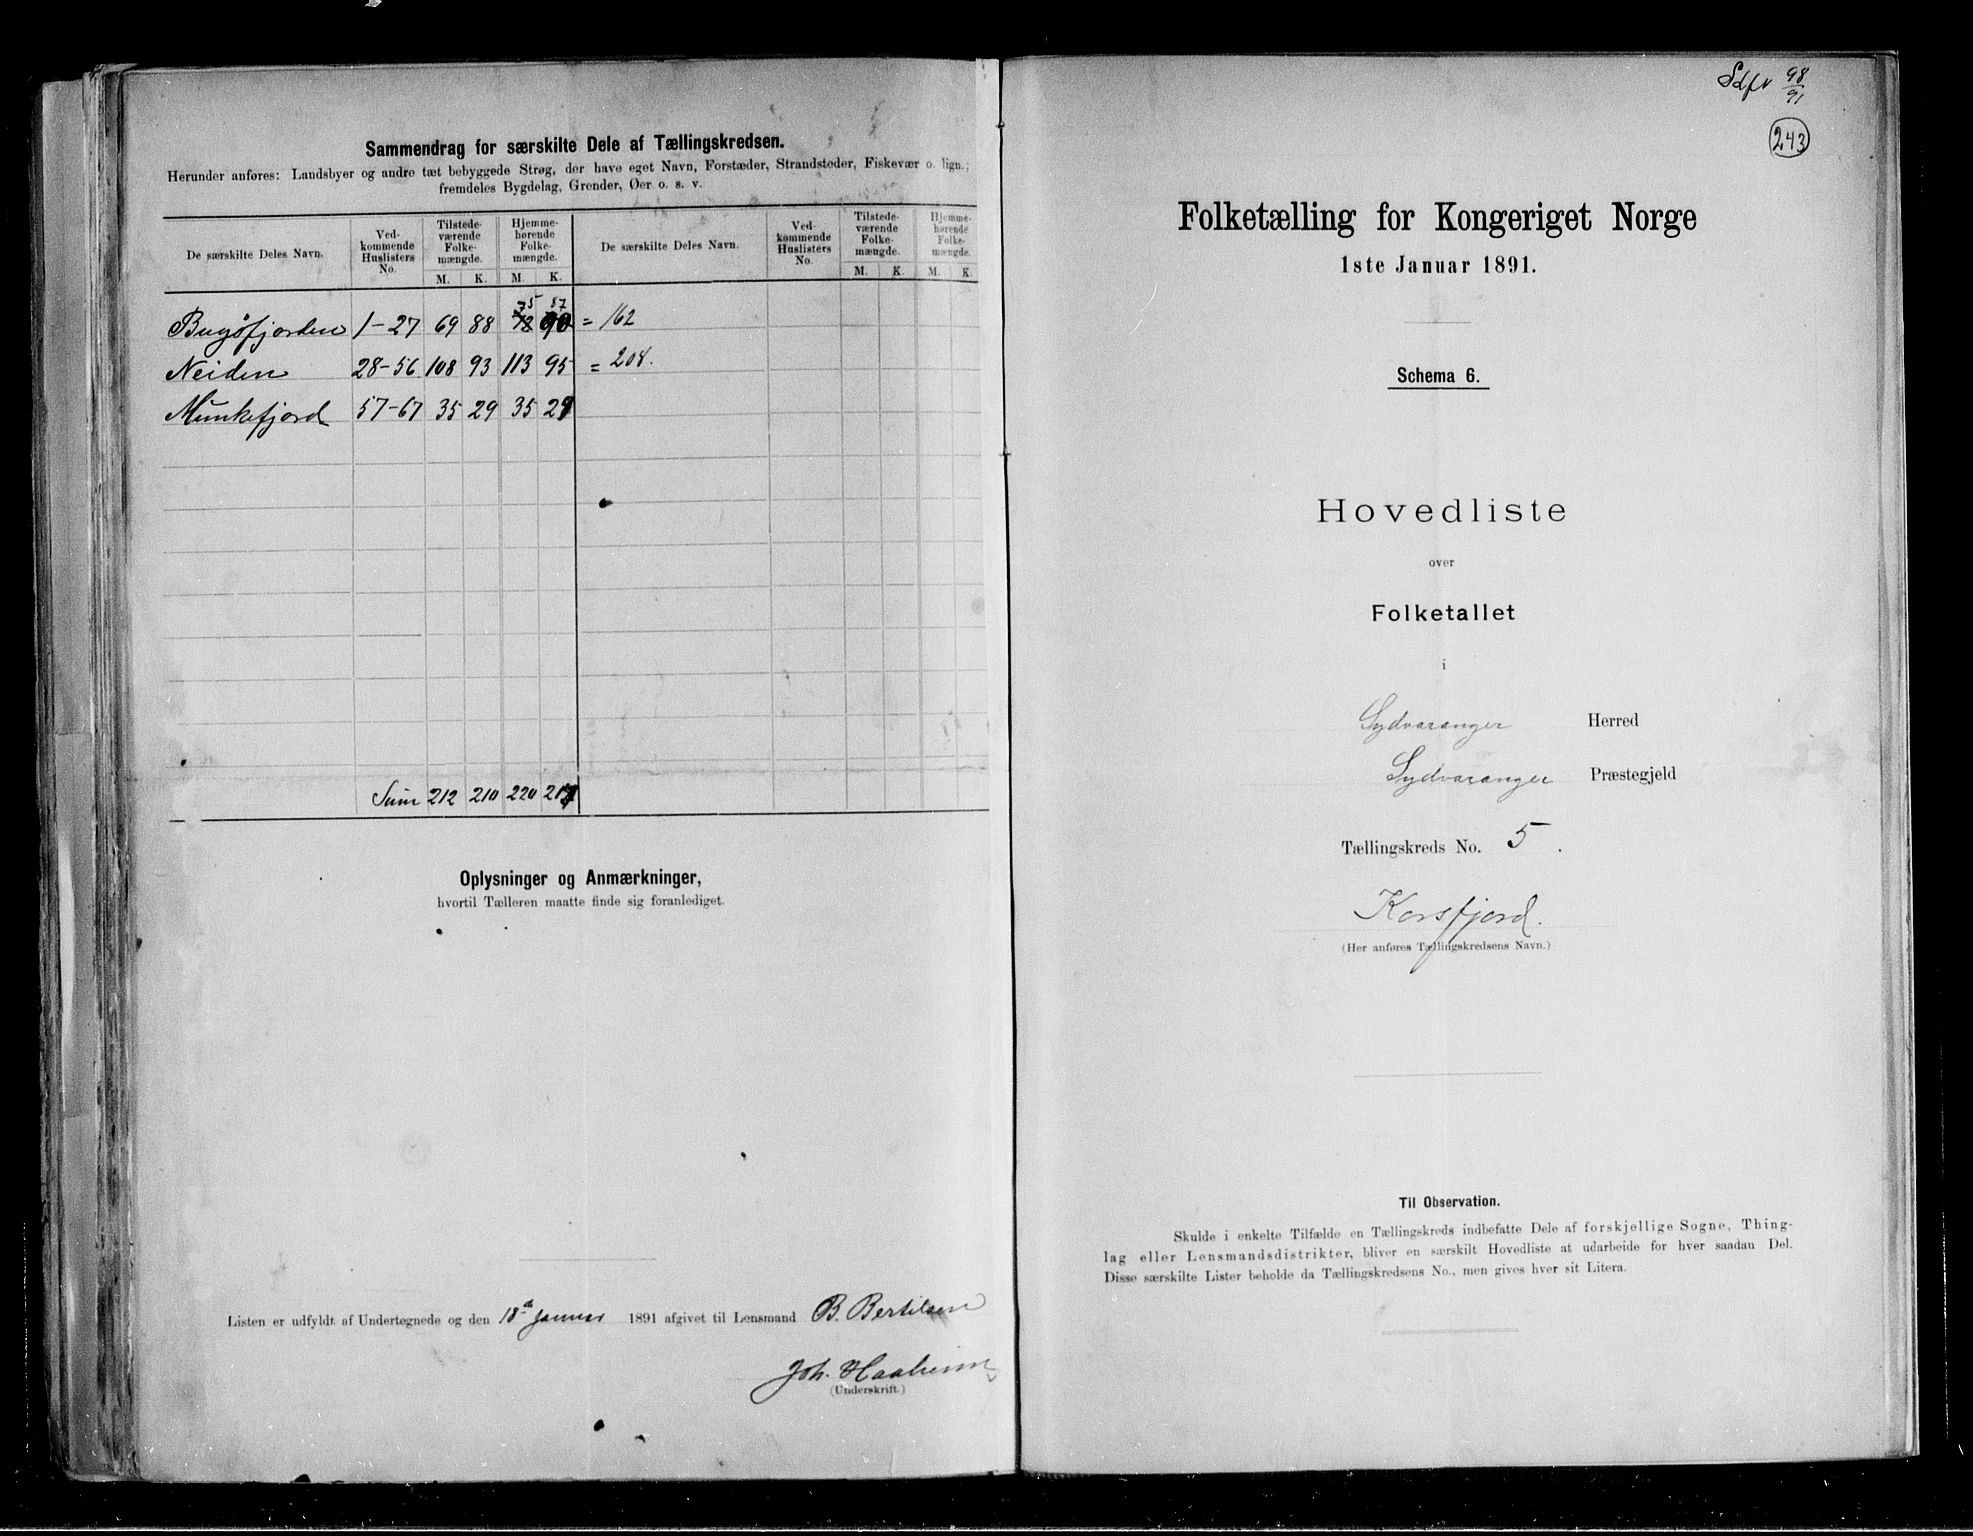 Sammendrag for særskilte Dele af Tællingskredsen.
Herunder anføres: Landsbyer og andre tæt bebyggede Strøg, der have eget Navn, Forstæder, Strandsteder, Fiskevær o. lign.;
fremdeles Bygdelag, Grender, Øer o. s. v.
De særskilte Deles Navn. Ved-kommende Huslisters No. Tilstede-værende Folke-mængde. Hjemme-hørende Folke-mængde. De særskilte Deles Navn. Ved-kommende Huslisters No. Tilstede-værende Folke-mængde. Hjemme-hørende Folke-mængde.
M. K. M. K. M. K. M. K.
75 87
Bugøfjorden 1-27 69 88 72 90 = 162
Neiden 28-56 108 93 113 95 = 208.
Munkefjord 57-67 35 29 35 29
Sum 212 210 220
Oplysninger og Anmærkninger,
hvortil Tælleren maatte finde sig foranlediget.
Listen er udfyldt af Undertegnede og den 18de Januar 1891 afgivet til Lensmand B. Bertilsen
Joh.
(Underskrift.)
98
91
243
Folketælling for Kongeriget Norge
1ste Januar 1891.
Schema 6.
Hovedliste
over
Folketallet
i
Sydvaranger Herred
Sydvaranger Præstegjeld
Tællingskreds No. 5.
Korsfjord.
(Her anføres Tællingskredsens Navn.)
Til Observation.
Skulde i enkelte Tilfælde en Tællingskreds indbefatte Dele af forskjellige Sogne, Thing-
lag eller Lensmandsdistrikter, bliver en særskilt Hovedliste at udarbeide for hver saadan Del.
Disse særskilte Lister beholde da Tællingskredsens No., men gives hver sit Litera.